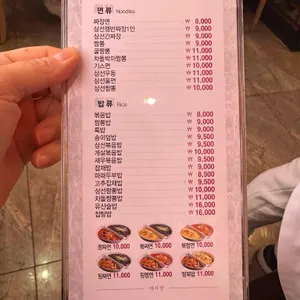 면류 Noodles
짜장면 ₩ 8,000
삼선쟁반짜장1인 ₩ 9,000
삼선간짜장 ₩ 9,000
짬뽕 ₩ 9,000
굴짬뽕 ₩ 11,000
차돌박이짬뽕 ₩ 11,000
기스면 ₩ 10,000
삼선우동 ₩ 11,000
삼선울면 ₩ 11,000
삼선짬뽕 ₩ 10,000
밥류 Rice
볶음밥 ₩ 8,000
짬뽕밥 ₩ 9,000
특밥 ₩ 9,000
송이덮밥 ₩ 9,500
삼선볶음밥 ₩ 9,500
게살볶음밥 ₩ 10,000
새우볶음밥 ₩ 9,500
잡채밥 ₩ 9,500
마파두부밥 ₩ 9,500
고추잡채밥 ₩ 9,500
삼선짬뽕밥 ₩ 10,000
차돌짬뽕밥 ₩ 11,000
유산슬밥 ₩ 16,000
잡탕밥 ₩ 16,000
짬짜면 10,000 볶짜면 10,000 볶짬면 10,000
탕짜면 11,000 탕짬면 11,000 탕볶밥 11,000